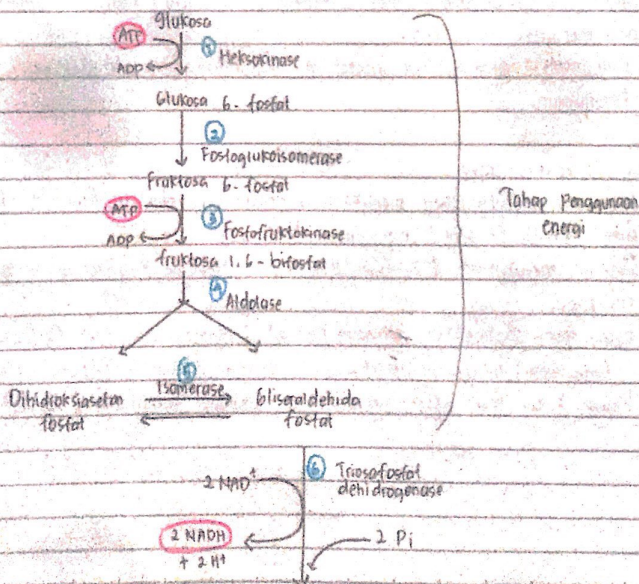 glukosa
ATP
ADP
1 Heksokinase
Glukosa 6-fosfat
2
Fosfoglukoisomerase
Fruktosa 6-fosfat
ATP
ADP
3 Fosfofruktokinase
fruktosa 1,6-bifosfat
4 Aldolase
5
Isomerase
Dihidroksiaseton
fosfat
Gliseraldehida
fosfat
Tahap penggunaan
energi
6 Triosafosfat
dehidrogenase
2 NAD+
2 NADH
+ 2 H+
2 Pi